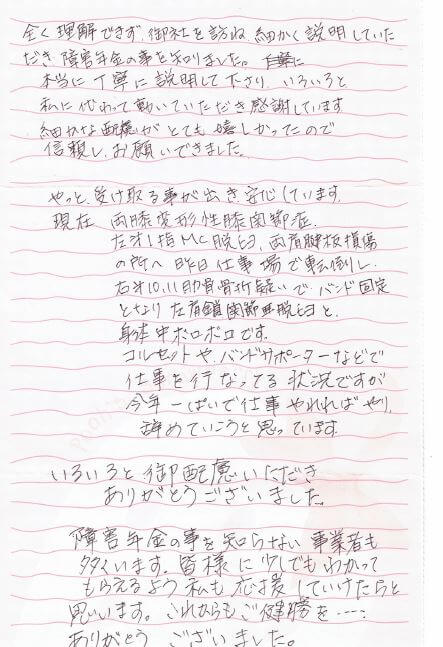 全く理解できず、御社を訪ね 細かく説明していた
だき障害年金の事を知りました。
本当に丁寧に説明して下さり、いろいろと
私に代わって動いていただき感謝しています
細かな配慮がとても嬉しかったので
信頼し、お願いできました。
やっと、受け取る事が出き、安心しています。
現在 両膝変形性膝関節症、
左オ1指MC脱臼、両肩腱板損傷
の所へ 昨日仕事場で転倒し、
右オ10,11肋骨骨折疑いでバンド固定
となり 左肩鎖関節亜脱臼と、
身体中ボロボロです。
コルセットや、バンドサポーターなどで
仕事を行なってる状況ですが
今年一ぱいで仕事やれればやり、
辞めていこうと思っています。
いろいろと御配慮いただき
ありがとうございました。
障害年金の事を知らない事業者も
多くいます。皆様に少しでもわかって
もらえるよう私も応援していけたらと
思います。これからもご健勝を……
ありがとう ございました。